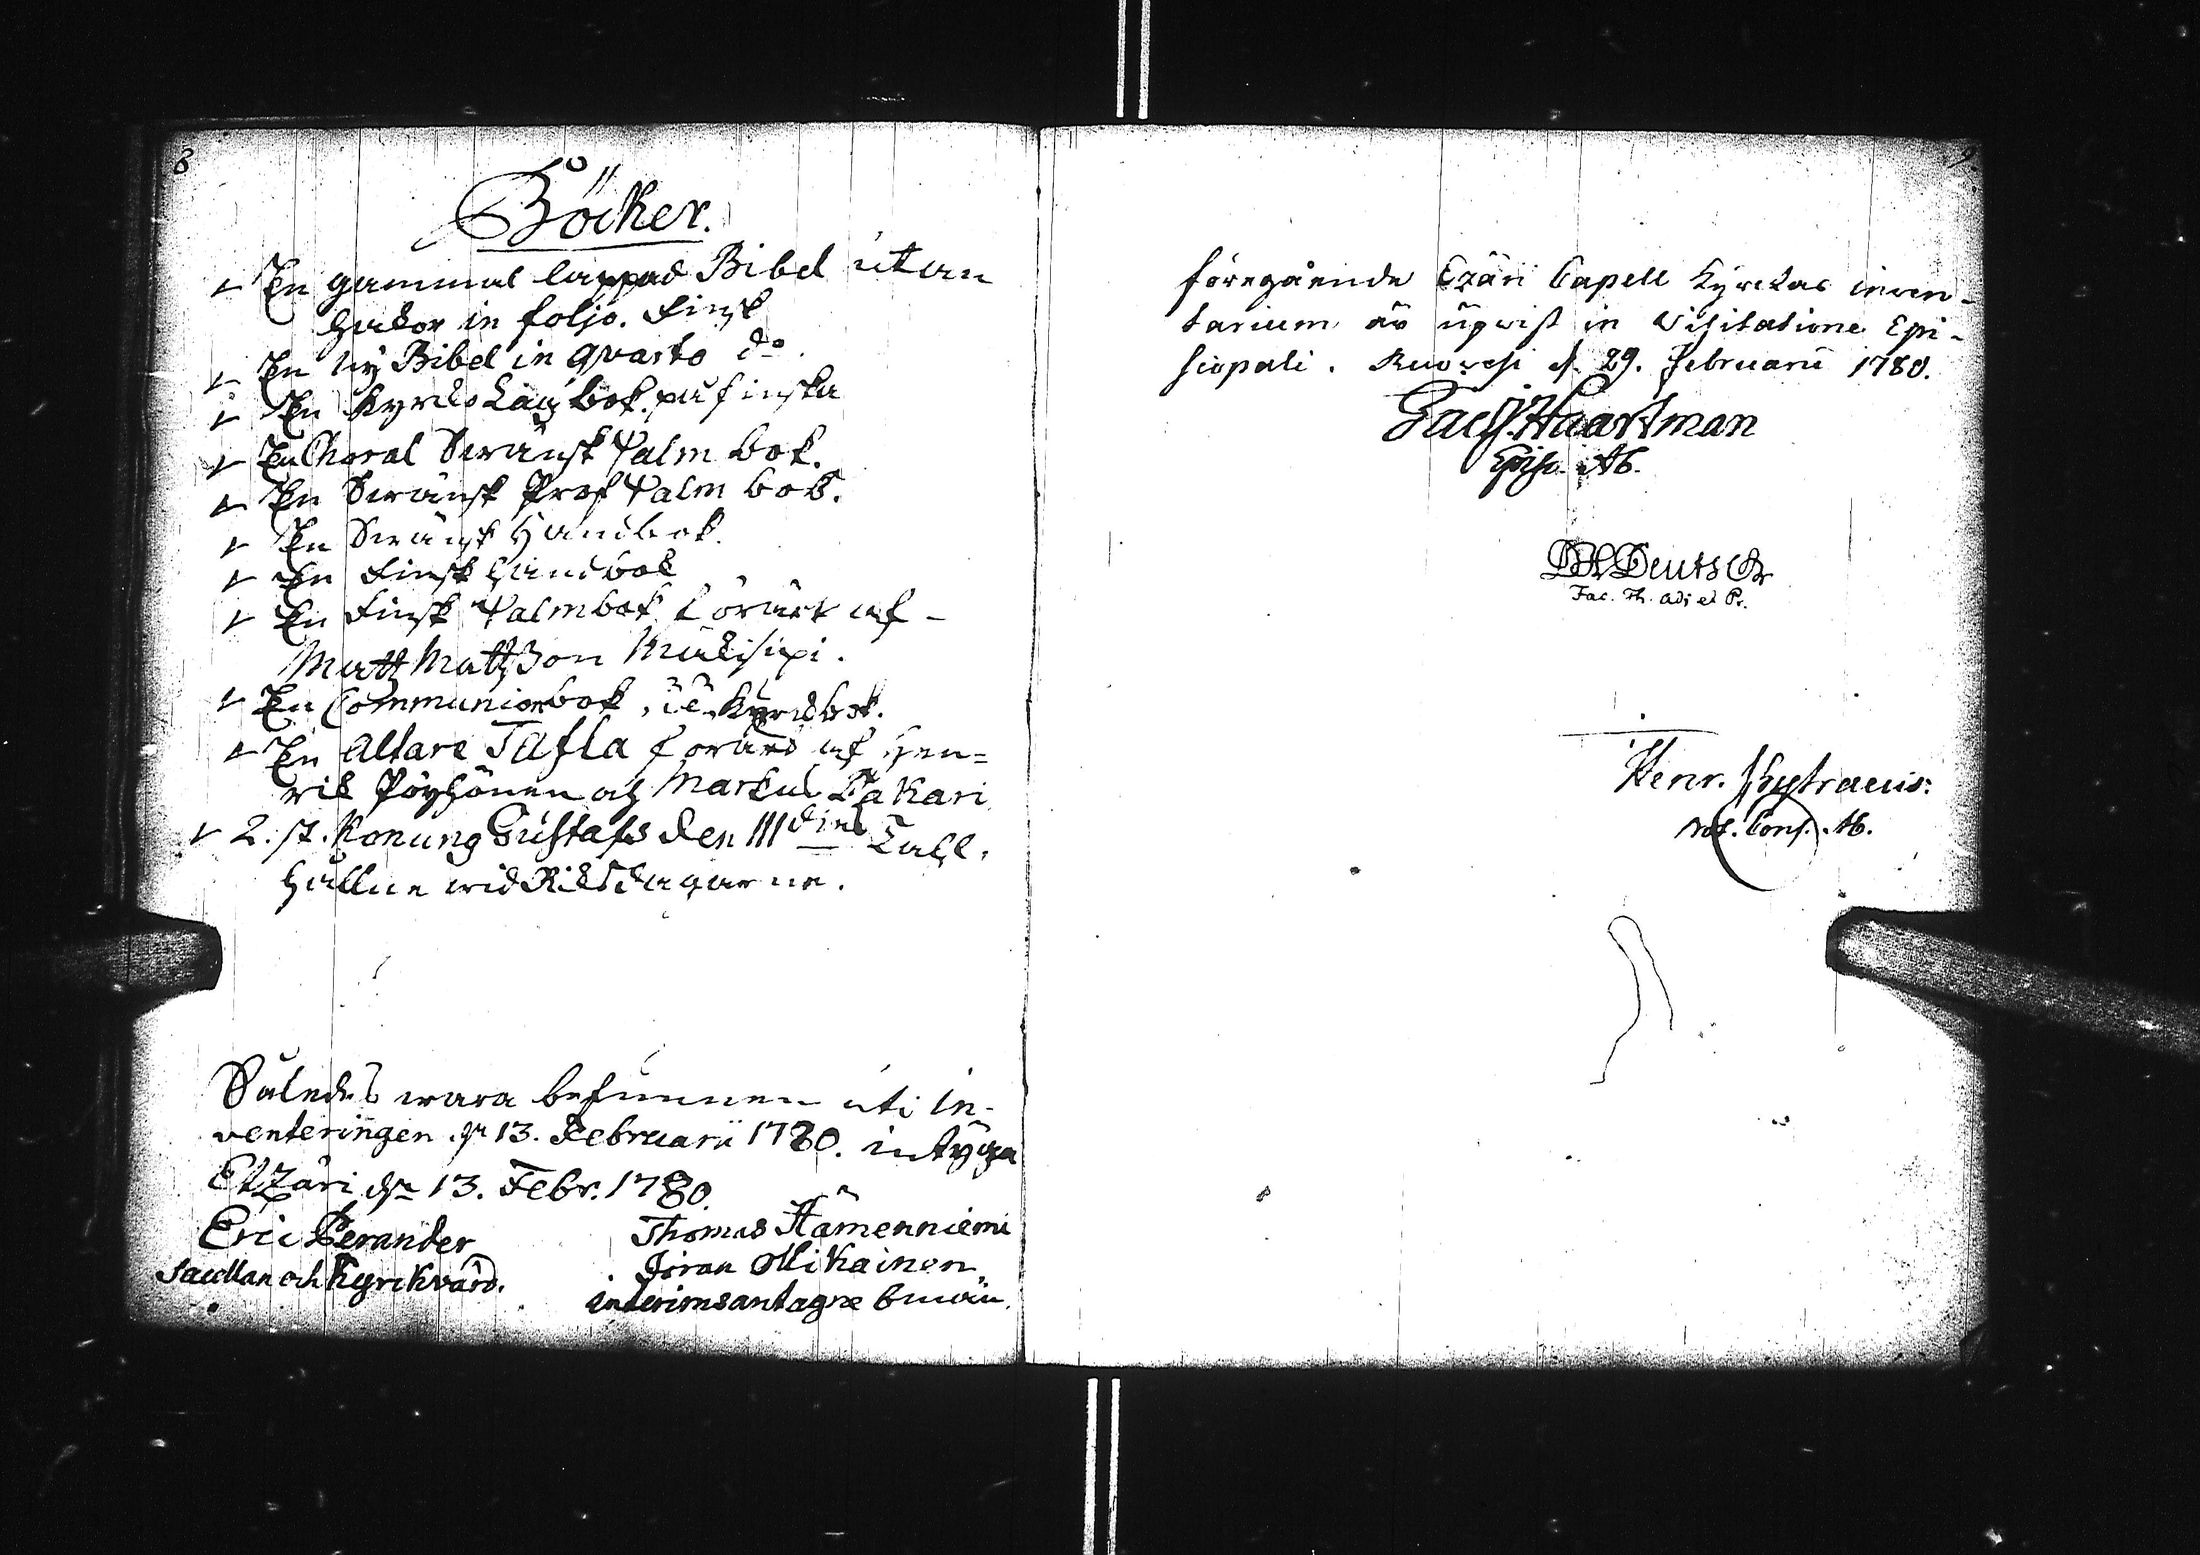 8
Böcker.
En gammal lappad Bibel utan
hakor in foljo. Finsk
En ny Bibel in qvarto do.
En Kyrko Lag bok på finska
En Choral Swänsk Psalm bok.
En Swänsk Prof Psalm bok.
En Swänsk Handbok.
En Finsk Handbok
En Finsk Psalmbok förärt af
Matz Matzson
En Communionbok, Kyrckbok.
En Altare Tafla förärd af Hen=
rik Pöyhönen och Markus Pakari
2. st. Konung Gustafs den III dies Tahl,
hållne wid Riksdagarne.
Således wara befunnen uti In-
venteringen dn 13. Februarii 1780. intyga
Etzäri dn 13. Febr. 1780.
Eric Perander
Sacellan och Kyrckvärd.
Thomas Hämenniemi
Jöran Mikainen
interimsantagne
9
föregående Ezäri Capell Kyrckas inven-
tarium är upwist in Visitatione Epi-
scopali. Ruovesi d. 29. Februarii 1780.
Jac. Haartman
Episc. Ab.
Deutsch
Fac. Th. Adj et Pr.
Henr. Chytraeus:
Not. Cons. Ab.